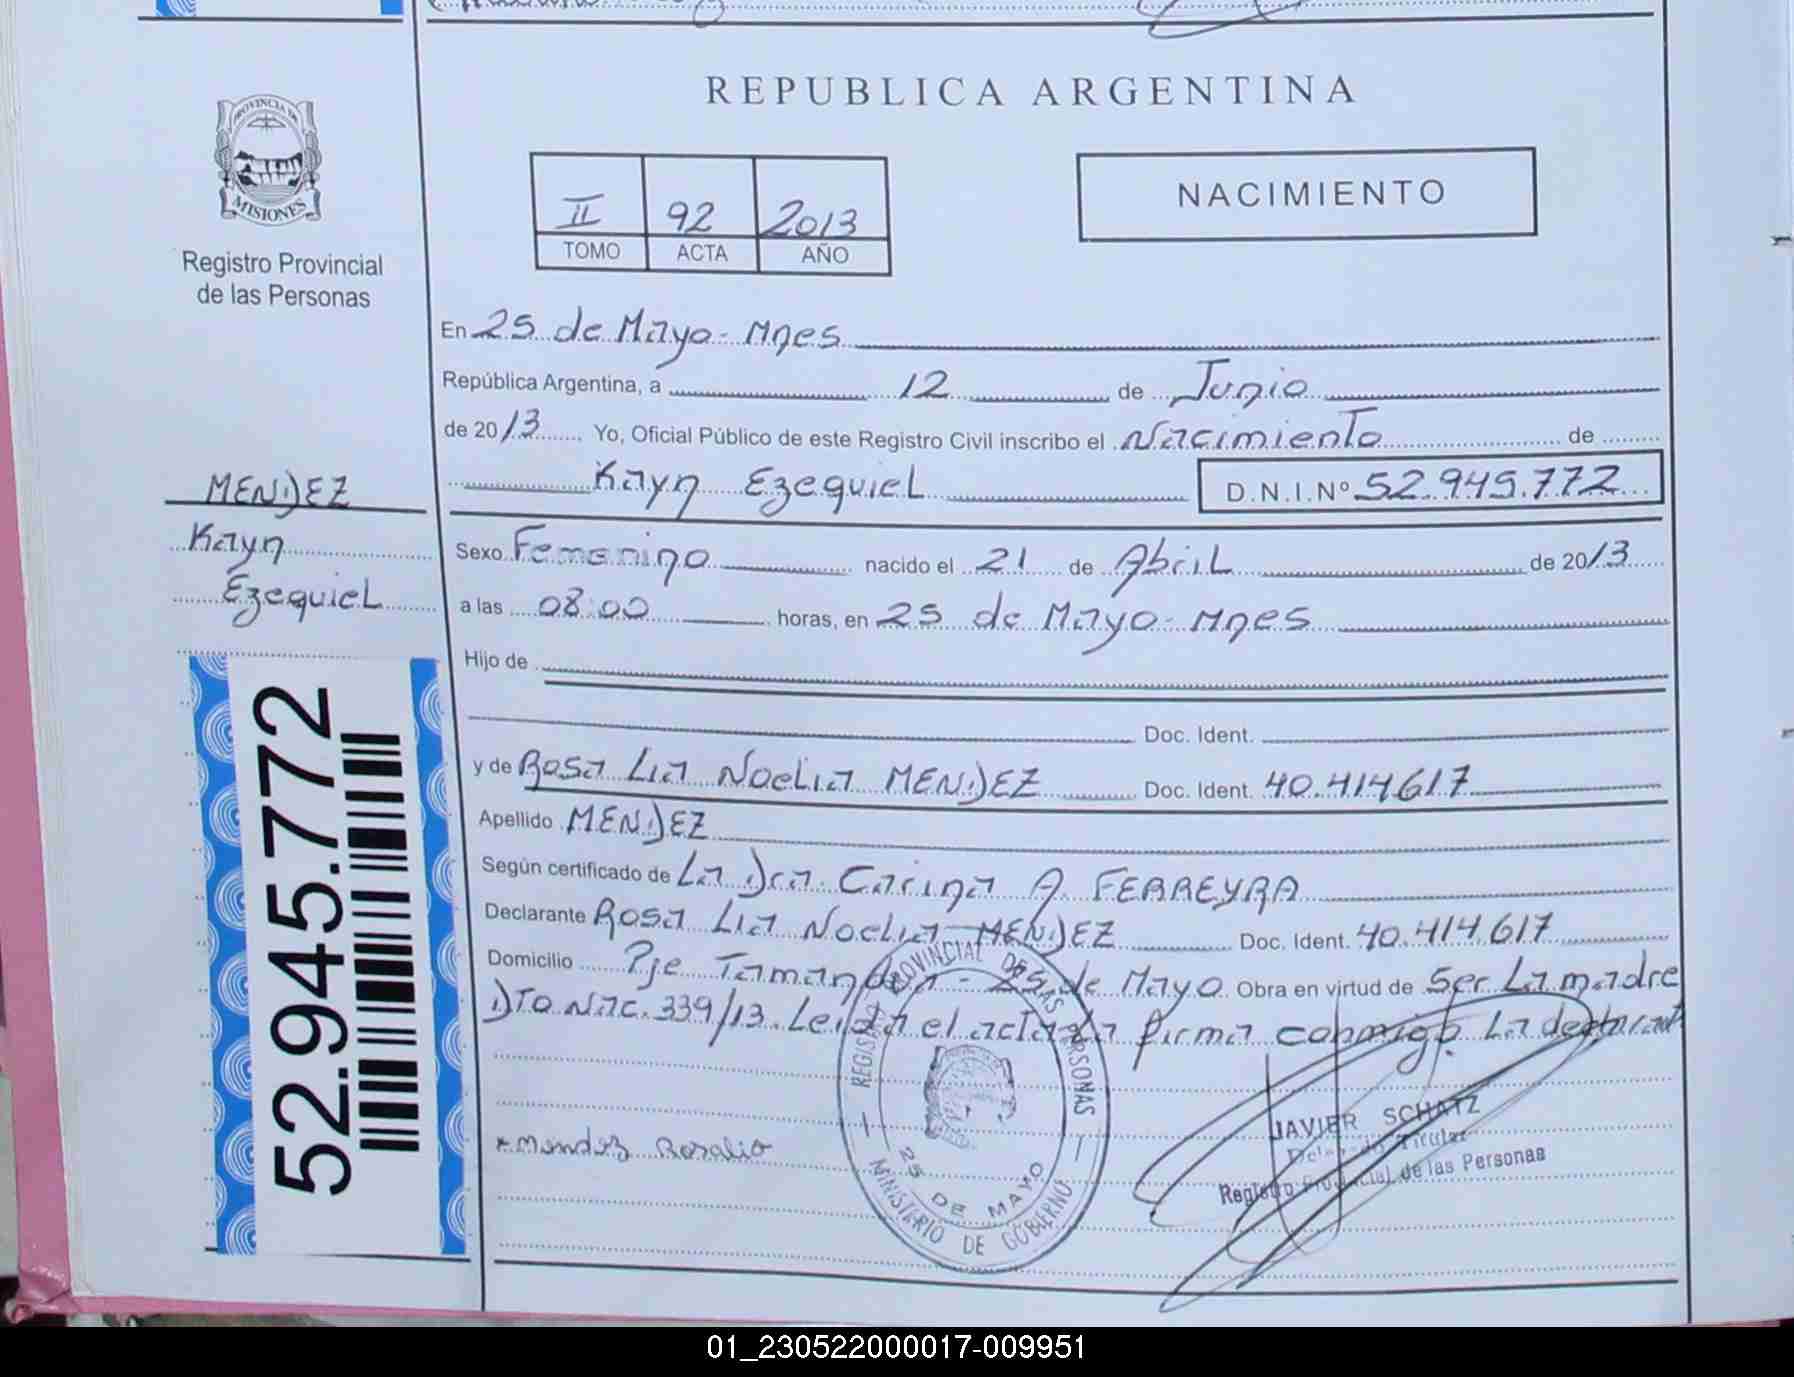 PROVINCIA DE
MISIONES
Registro Provincial
de las Personas
REPUBLICA ARGENTINA
II 92 2013
TOMO ACTA AÑO
NACIMIENTO
En 25 de Mayo - Mnes
República Argentina, a 12 de Junio
de 2013 Yo, Oficial Público de este Registro Civil inscribo el Nacimiento de
Kayn Ezequiel D.N.I.Nº 52.945.772
MENDEZ
Kayn
Ezequiel
52.945.772
Sexo Femenino nacido el 21 de Abril de 2013
a las 08:00 horas, en 25 de Mayo - Mnes
Hijo de
Doc. Ident.
y de Rosa Lia Noelia MENDEZ Doc. Ident. 40.414617
Apellido MENDEZ
Según certificado de La Dra. Carina A. FERREYRA
Declarante Rosa Lia Noelia MENDEZ Doc. Ident. 40.414.617
Domicilio Pje Tamandua - 25 de Mayo Obra en virtud de Ser La madre
DTO NAC. 339/13. Leida el acta la firma conmigo La declarant
Mendez Rosalia
REGISTRO PROVINCIAL DE LAS PERSONAS
25 DE MAYO
MINISTERIO DE GOBIERNO
JAVIER SCHATZ
Delegado Titular
Registro Provincial de las Personas
01_230522000017-009951